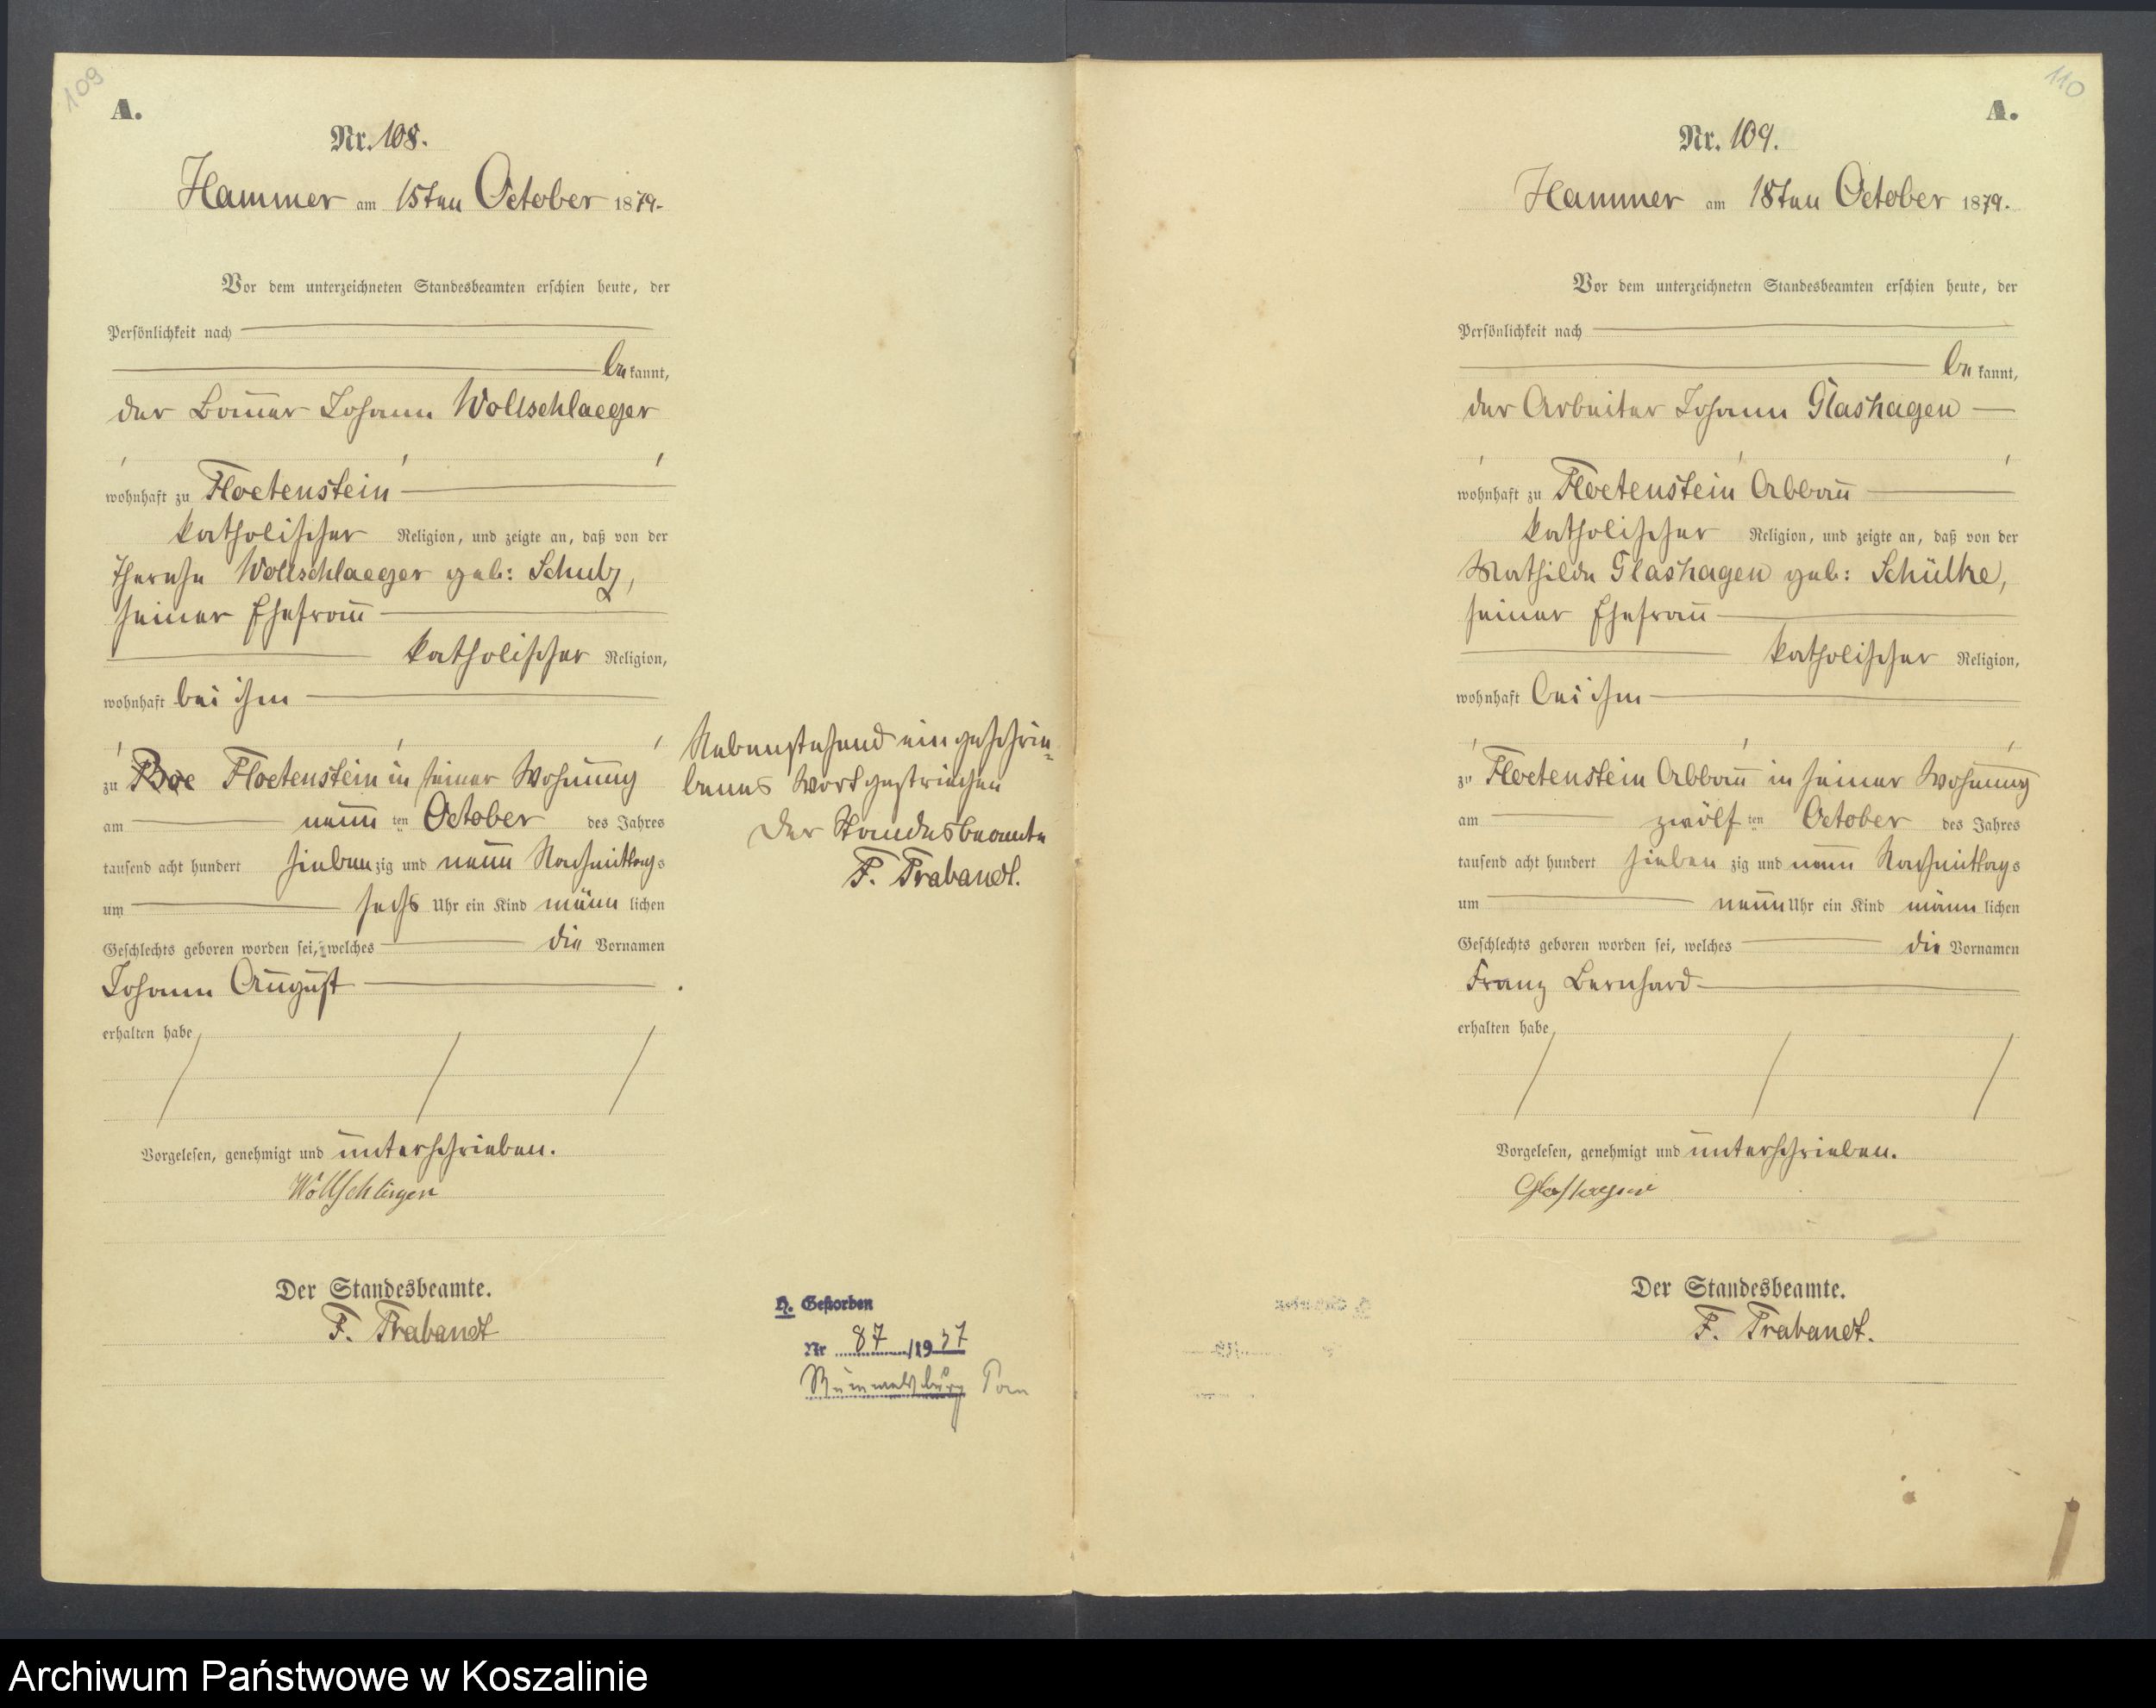 109
A.
Nr. 108.
Hammer am 15ten October 1879.
Vor dem unterzeichneten Standesbeamten erschien heute, der
Persönlichkeit nach
bekannt,
der Bauer Johann Wollschlaeger
wohnhaft zu Floetenstein
katholischer Religion, und zeigte an, daß von der
Therese Wollschlaeger geb: Schulz,
seiner Ehefrau
katholischer Religion,
wohnhaft bei ihm
zu Boe Floetenstein in seiner Wohnung
am neunten October des Jahres
tausend acht hundert siebenzig und neun Nachmittags
um sechs Uhr ein Kind männlichen
Geschlechts geboren worden sei, welches die Vornamen
Johann August
erhalten habe
Vorgelesen, genehmigt und unterschrieben.
Der Standesbeamte.
F. Trabandt
Nebenstehend eingeschrie-
benes Wort gestrichen
Der Standesbeamte
F. Trabandt.
H. Gestorben
Nr 87/1937
Rummelsburg Pom
110
A.
Nr. 109.
Hammer am 18ten October 1879.
Vor dem unterzeichneten Standesbeamten erschien heute, der
Persönlichkeit nach
bekannt,
der Arbeiter Johann Glashagen
wohnhaft zu Floetenstein Abbau
katholischer Religion, und zeigte an, daß von der
Mathilde Glashagen geb: Schülke,
seiner Ehefrau
katholischer Religion,
wohnhaft bei ihm
zu Floetenstein Abbau in seiner Wohnung
am zwölften October des Jahres
tausend acht hundert siebenzig und neun Nachmittags
um neun Uhr ein Kind männlichen
Geschlechts geboren worden sei, welches die Vornamen
Franz Bernhard
erhalten habe
Vorgelesen, genehmigt und unterschrieben.
Glashagen
Der Standesbeamte.
F. Trabandt.
Archiwum Państwowe w Koszalinie